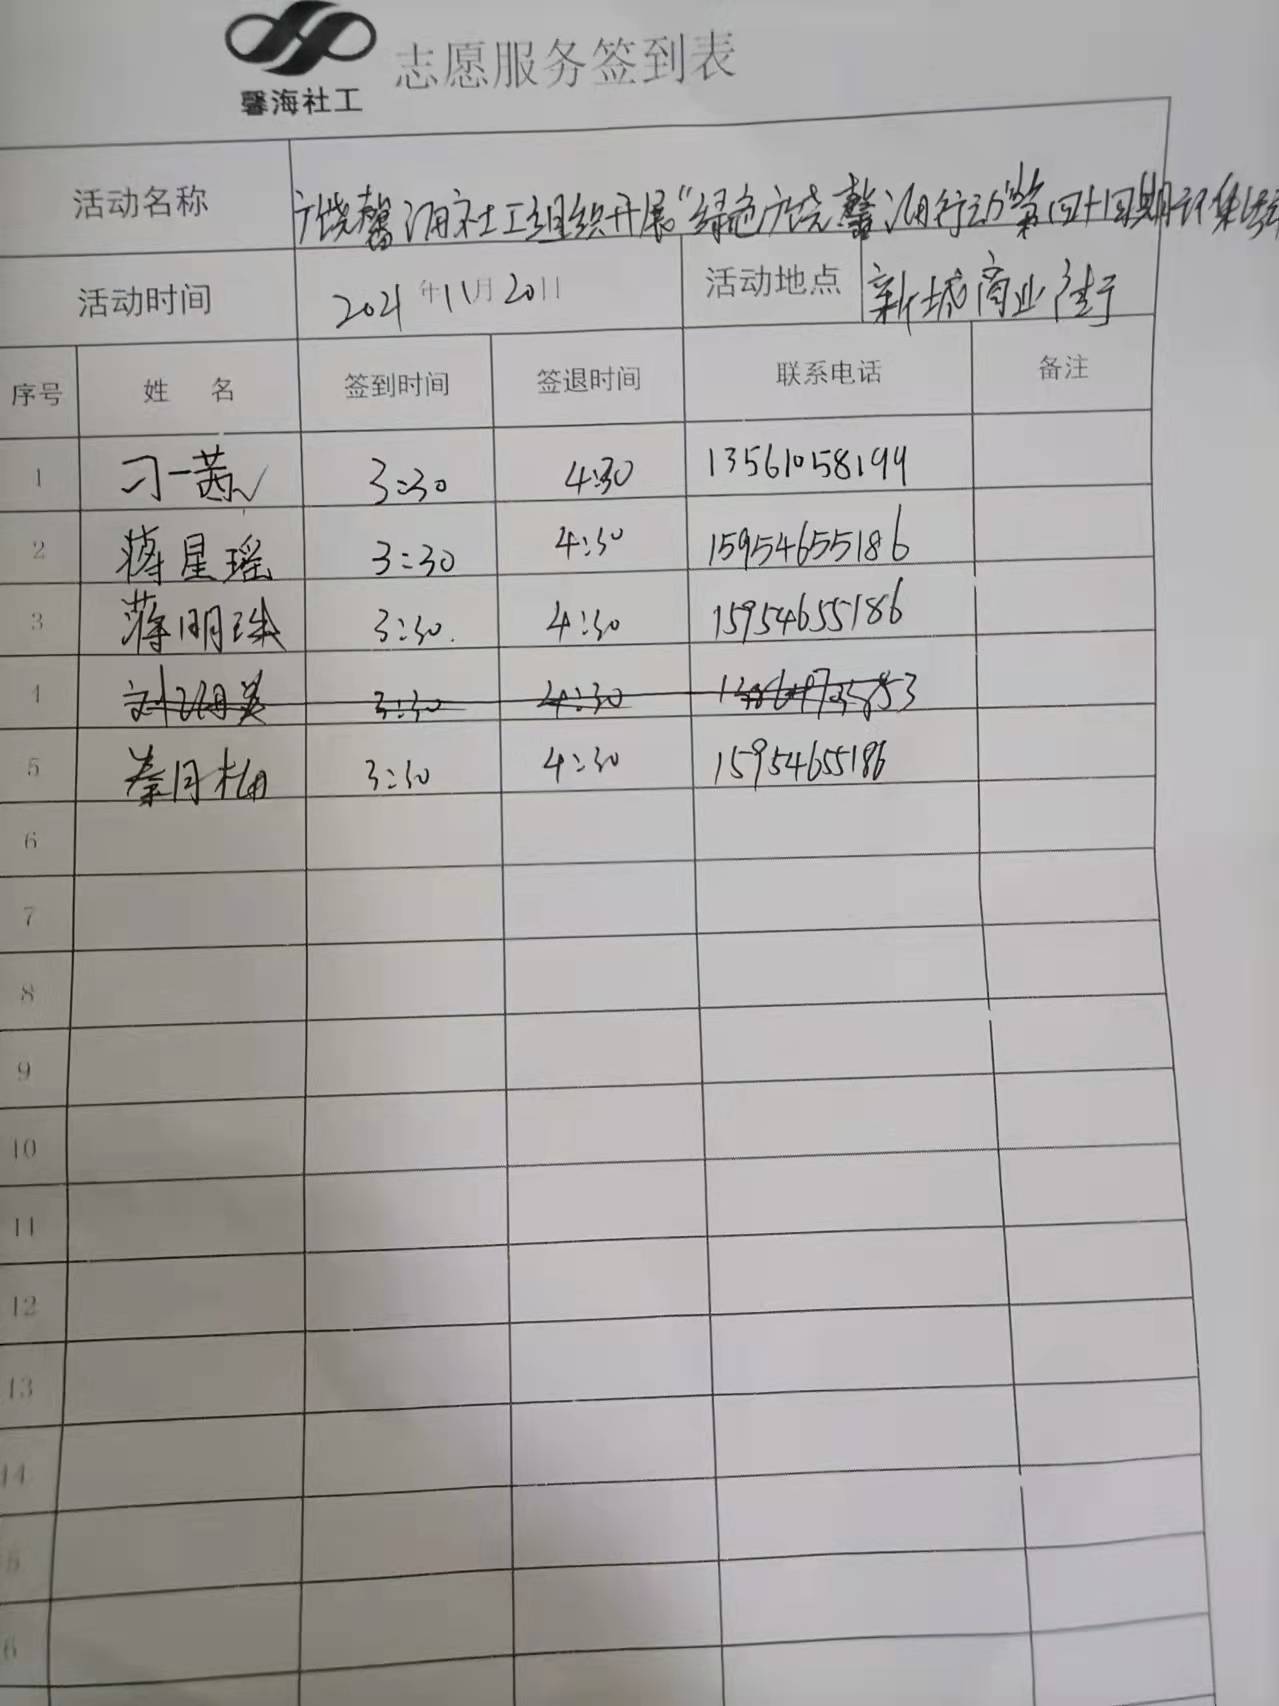 志愿服务签到表
馨海社工
活动名称 广饶馨海社工组织开展“绿色广饶馨海行动”第四十四期
活动时间 2021年11月20日 活动地点 新城商业街
序号 姓 名 签到时间 签退时间 联系电话 备注
1 刁一茜 3:30 4:30 13561058199
2 蒋星瑶 3:30 4:30 15954655186
3 蒋明珠 3:30. 4:30 15954655186
4 3:30 4:30
5 秦月梅 3:30 4:30 15954655186
6
7
8
9
10
11
12
13
14
5
6